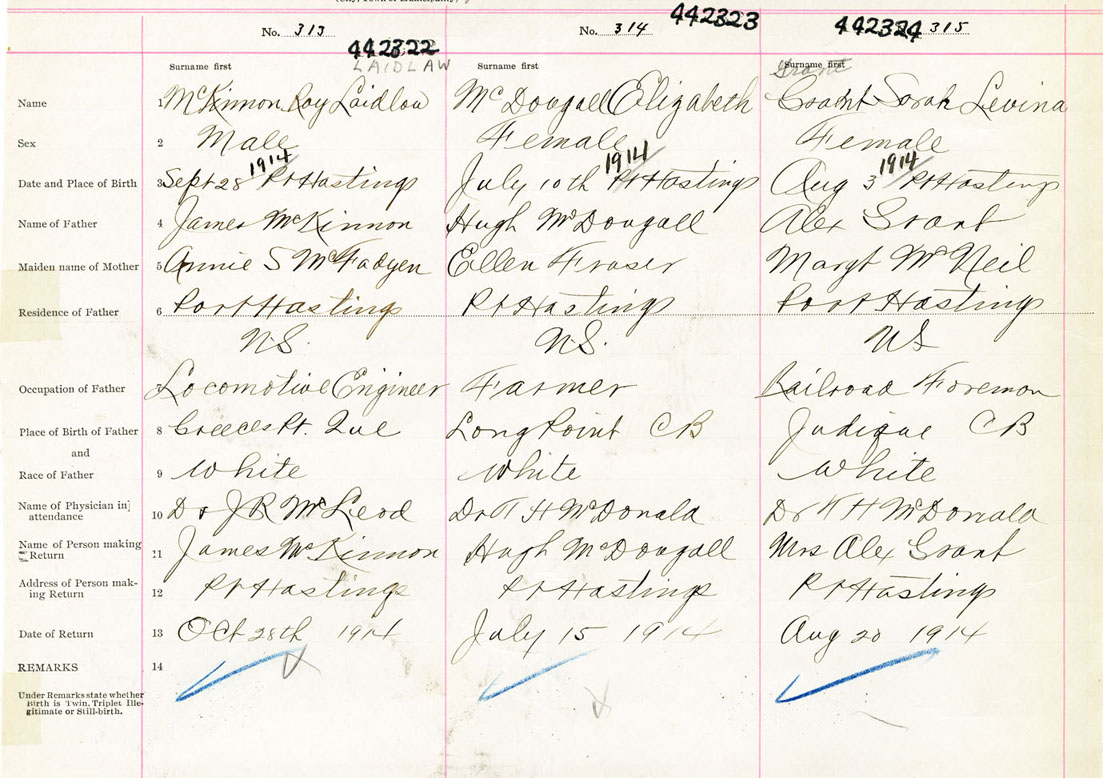 No. 313 No. 314 No. 315
442322 442323 442324
LAIDLAW
Surname first Surname first Surname first
Grant
Name 1 McKinnon Roy Laidlaw McDougall Elizabeth Grant Sarah Levina
Sex 2 Male Female Female
1914 1914 1914
Date and Place of Birth 3 Sept 28 Pt Hastings July 10th Pt Hastings Aug 3 Pt Hastings
Name of Father 4 James McKinnon Hugh McDougall Alex Grant
Maiden name of Mother 5 Annie S McFadyen Ellen Fraser Margt McNeil
Residence of Father 6 Port Hastings Pt Hastings Port Hastings
N.S. N.S. N S
Occupation of Father 7 Locomotive Engineer Farmer Railroad Foreman
Place of Birth of Father 8 Greeces Pt. Que Long Point CB Judique CB
and
Race of Father 9 White White White
Name of Physician in attendance 10 Dr J R McLeod Dr P H McDonald Dr P H McDonald
Name of Person making Return 11 James McKinnon Hugh McDougall Mrs Alex Grant
Address of Person mak-
ing Return 12 Pt Hastings Pt Hastings Pt Hastings
Date of Return 13 Oct 28th 1914 July 15 1914 Aug 20 1914
REMARKS 14
Under Remarks state whether
Birth is Twin, Triplet Ille-
gitimate or Still-birth.